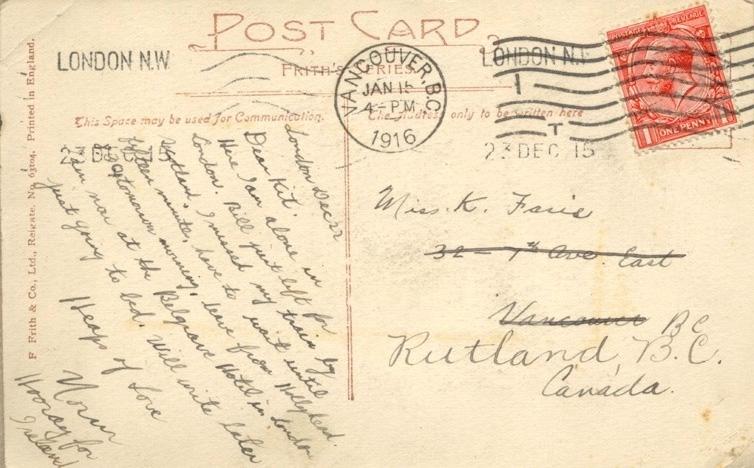 POST CARD
FRITH'S SERIES
LONDON N.W
VANCOUVER, B.C.
JAN 15
4 - PM
1916
LONDON N.W
1
T
23 DEC 15
ONE PENNY
This Space may be used for Communication.
The Address only to be written here
23 DEC 15
F Frith & Co., Ltd., Reigate. No. 63104. Printed in England.
London Dec 22
Dear Kit.
Here I am alone in
London. Bill just left for
Scotland. I missed my train by
minute, have to wait until
tomorrow morning, leave from Hollyhead.
am now at the Belgrave Hotel in London
just going to bed. Will write later
Heaps of Love
Norm
Hooray for
Ireland
Miss. K. Faris
32 - 7th Ave. East
Vancouver BC
Rutland B.C.
Canada.